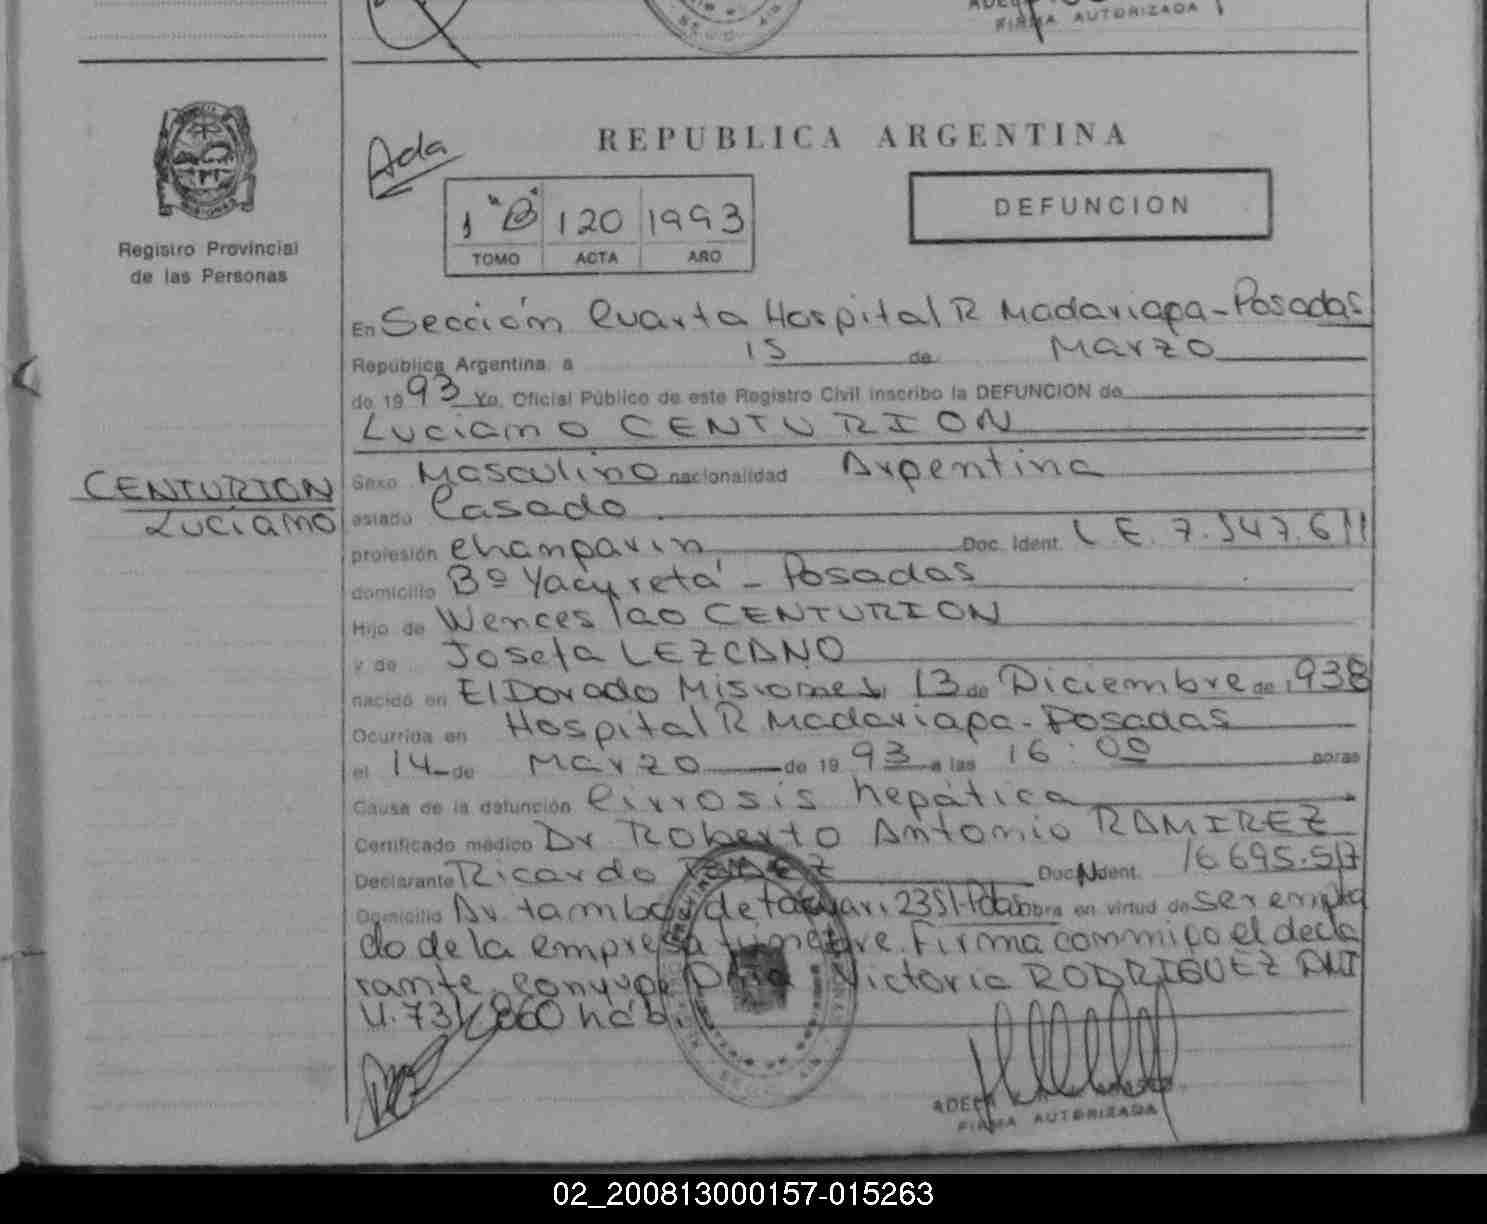 FIRMA AUTORIZADA
Registro Provincial
de las Personas
Ada
REPUBLICA ARGENTINA
1 "B" 120 1993
TOMO ACTA AÑO
DEFUNCION
En Sección Cuarta Hospital R Madariaga - Posadas
República Argentina, a 15 de Marzo
de 1993 Yo, Oficial Público de este Registro Civil inscribo la DEFUNCION de
Luciano CENTURION
CENTURION
Luciano
Sexo Masculino nacionalidad Argentina
estado Casado
profesión Changarin Doc. Ident. L E. 7.547.611
domicilio Bº Yacyretá - Posadas
Hijo de Wenceslao CENTURION
y de Josefa LEZCANO
nacido en El Dorado Misiones, 13 de Diciembre de 1938
Ocurrida en Hospital R Madariaga - Posadas
el 14 de Marzo de 1993 a las 16:00 horas
Causa de la defunción Cirrosis hepática
Certificado médico Dr Roberto Antonio RAMIREZ
Declarante Ricardo Doc. Ident. 16.695.517
Domicilio Av. tambor de tacuari 2351-Pdas obra en virtud de ser emplea
do de la empresa funebre. Firma conmigo el decla
rante. Conyuge Victoria RODRIGUEZ DNI
860
FIRMA AUTORIZADA
02_200813000157-015263